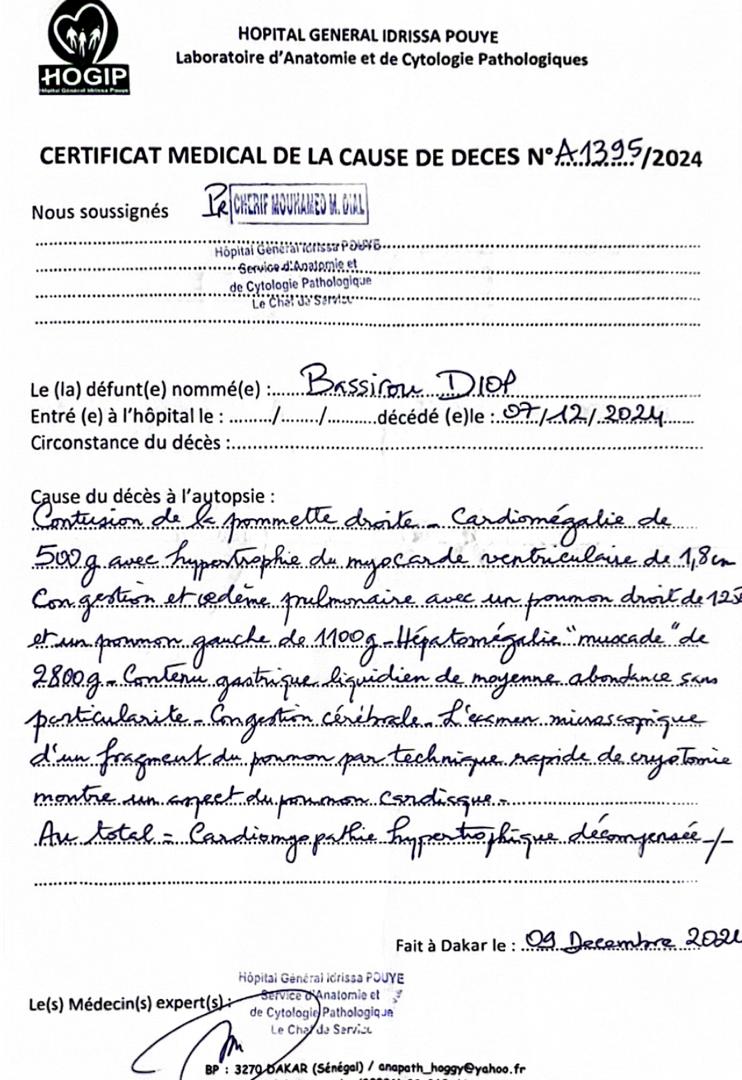 HOGIP
Hôpital Général Idrissa Pouye
HOPITAL GENERAL IDRISSA POUYE
Laboratoire d'Anatomie et de Cytologie Pathologiques
CERTIFICAT MEDICAL DE LA CAUSE DE DECES N°A1395/2024
Nous soussignés Pr CHERIF MOUHAMED M. DIAL
Hôpital Général Idrissa POUYE
Service d'Anatomie et
de Cytologie Pathologique
Le Chef de Service
Le (la) défunt(e) nommé(e) : Bassirou DIOP
Entré (e) à l'hôpital le : ......../......./.......... décédé (e)le : 07/12/2024
Circonstance du décès :
Cause du décès à l'autopsie :
Contusion de la pommette droite - Cardiomégalie de
500 g avec hypertrophie du myocarde ventriculaire de 1,8cm
Congestion et œdème pulmonaire avec un poumon droit de
et un poumon gauche de 1100 g - Hépatomégalie "muscade" de
2800 g - Contenu gastrique liquidien de moyenne abondance sans
particularité - Congestion cérébrale - L'examen microscopique
d'un fragment du poumon par technique rapide de cryotomie
montre un aspect du poumon cardiaque -
Au total = Cardiomyopathie hypertrophique décompensée -/-
Fait à Dakar le : 09 Decembre
Hôpital Général Idrissa POUYE
Le(s) Médecin(s) expert(s) :
Service d'Anatomie et
de Cytologie Pathologique
Le Chef de Service
BP : 3270 DAKAR (Sénégal) / anapath_hoggy@yahoo.fr